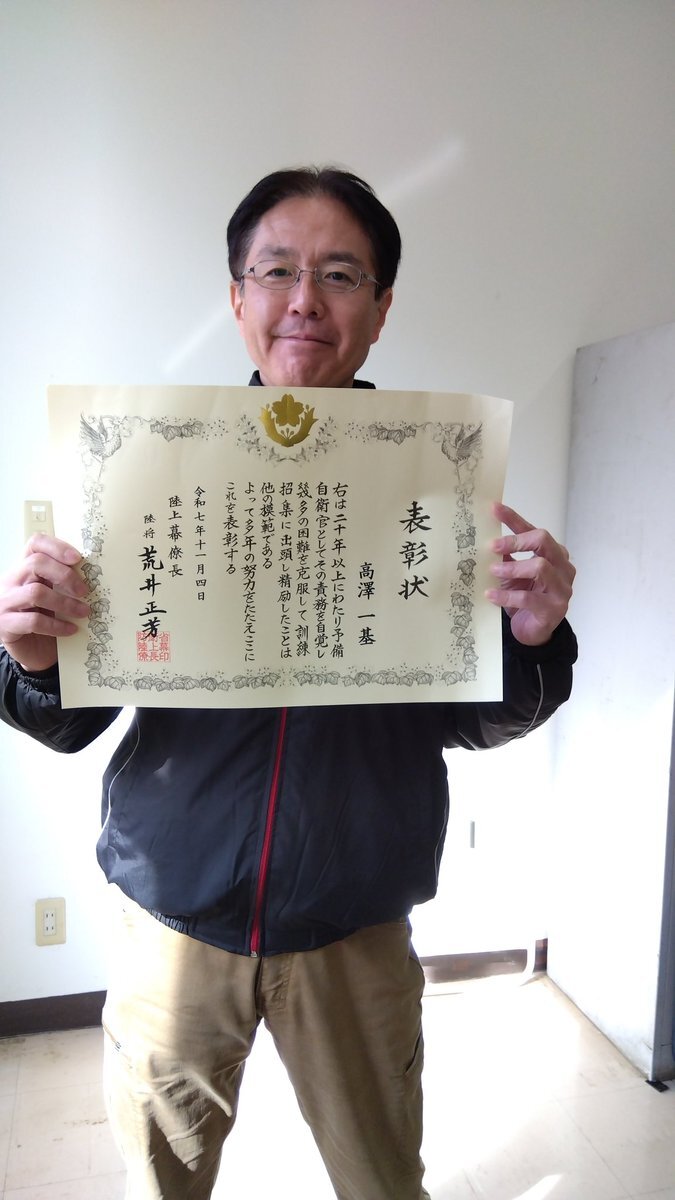 表彰状
高澤一基
右は二十年以上にわたり予備
自衛官としてその責務を自覚し
幾多の困難を克服して訓練
招集に出頭し精励したことは
他の模範である
よって多年の努力をたたえここに
これを表彰する
令和七年十一月四日
陸上幕僚長
陸将 荒井正芳